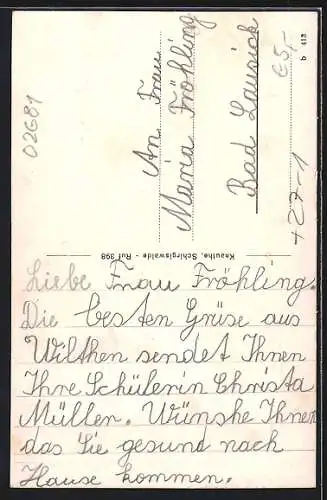 An Frau
Maria Fröhling
Bad Lausick
02681
€5,-
+27-1
b 413
Knauthe, Schirgiswalde - Ruf 398
Liebe Frau Fröhling.
Die besten Grüse aus
Wilthen sendet Ihnen
Ihre Schülerin Christa
Müller. Wünshe Ihnen
das Sie gesund nach
Hause kommen.